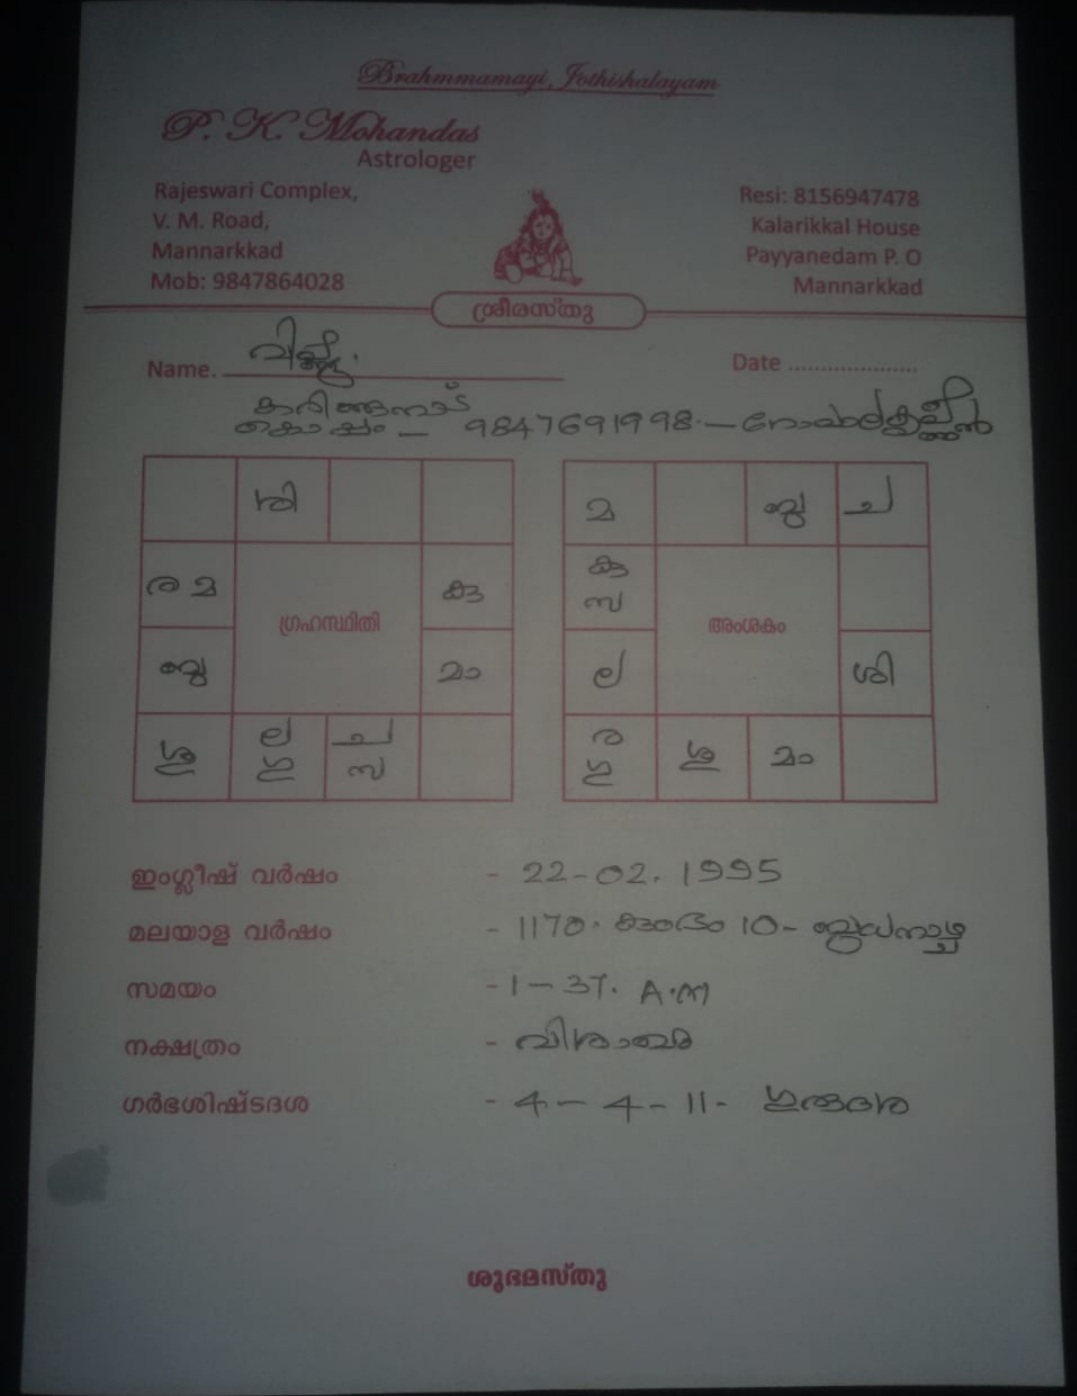 Brahmmamayi Jothishalayam
P. K. Mohandas
Astrologer
Rajeswari Complex,
V. M. Road,
Mannarkkad
Mob: 9847864028
Resi: 8156947478
Kalarikkal House
Payyanedam P. O
Mannarkkad
ശ്രീരസ്തു
Name.
Date ....................
കരിങ്ങനാട്
കൊപ്പം – 9847691998.–
ശി
ര മ
കു
ഗ്രഹസ്ഥിതി
ബു
മാ
ശു
ല
ഗു
ച
സ
മ
ബു
ച
കു
സ
അംശകം
ല
ശി
ര
ഗു
ശു
മാ
ഇംഗ്ലീഷ് വർഷം - 22-02. 1995
മലയാള വർഷം - 1170. കുംഭം 10- ബുധനാഴ്ച
സമയം - 1-37. A.M
നക്ഷത്രം - വിശാഖം
ഗർഭശിഷ്ടദശ - 4 - 4 - 11 - ഗുരുദശ
ശുഭമസ്തു